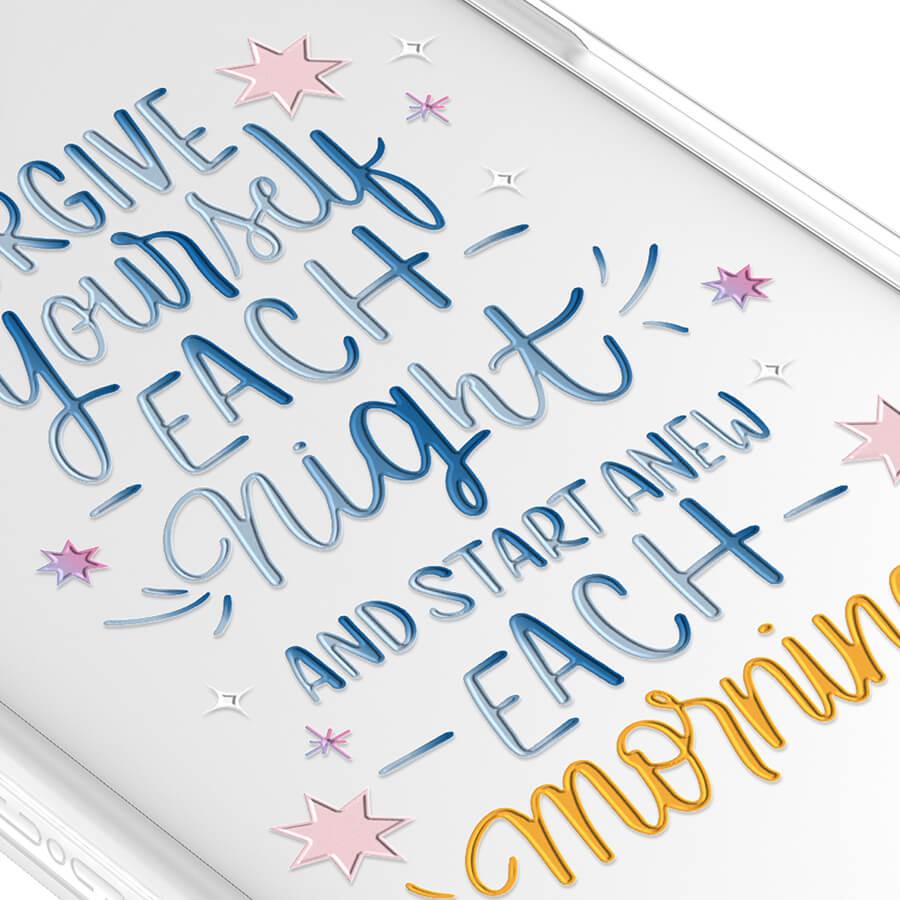 RGIVE
yourself
EACH
night
AND START ANEW
EACH
mornin